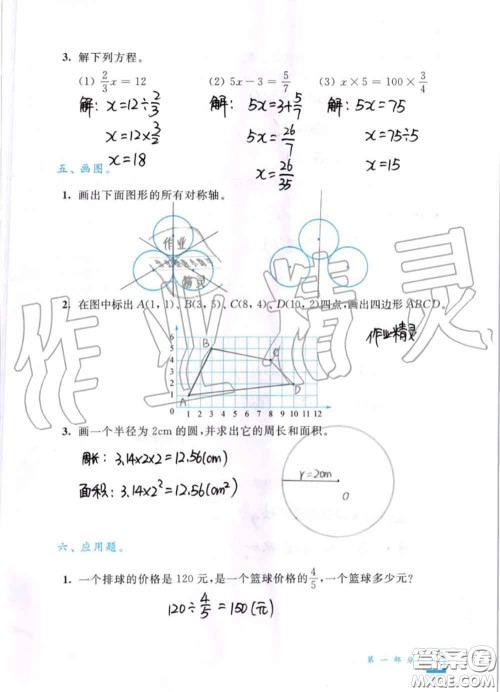 3. 解下列方程。
(1) 2/3x = 12 (2) 5x − 3 = 5/7 (3) x × 5 = 100 × 3/4
解: x = 12 ÷ 2/3 解: 5x = 3 + 5/7 解: 5x = 75
x = 12 × 3/2 5x = 26/7 x = 75 ÷ 5
x = 18 x = 26/35 x = 15
五、画图。
1. 画出下面图形的所有对称轴。
作业
精灵
2. 在图中标出 A(1, 1)、B(3, 5)、C(8, 4)、D(10, 2)四点,画出四边形 ABCD。
作业精灵
作业精灵
6
5
4
3
2
1
0 1 2 3 4 5 6 7 8 9 10 11 12
A B C D
3. 画一个半径为 2cm 的圆,并求出它的周长和面积。
周长: 3.14×2×2=12.56(cm)
面积: 3.14×2²=12.56(cm²)
r=2cm
O
六、应用题。
1. 一个排球的价格是 120 元,是一个篮球价格的 4/5,一个篮球多少元?
120 ÷ 4/5 = 150 (元)
第 一 部 分
答案圈
MXQE.COM